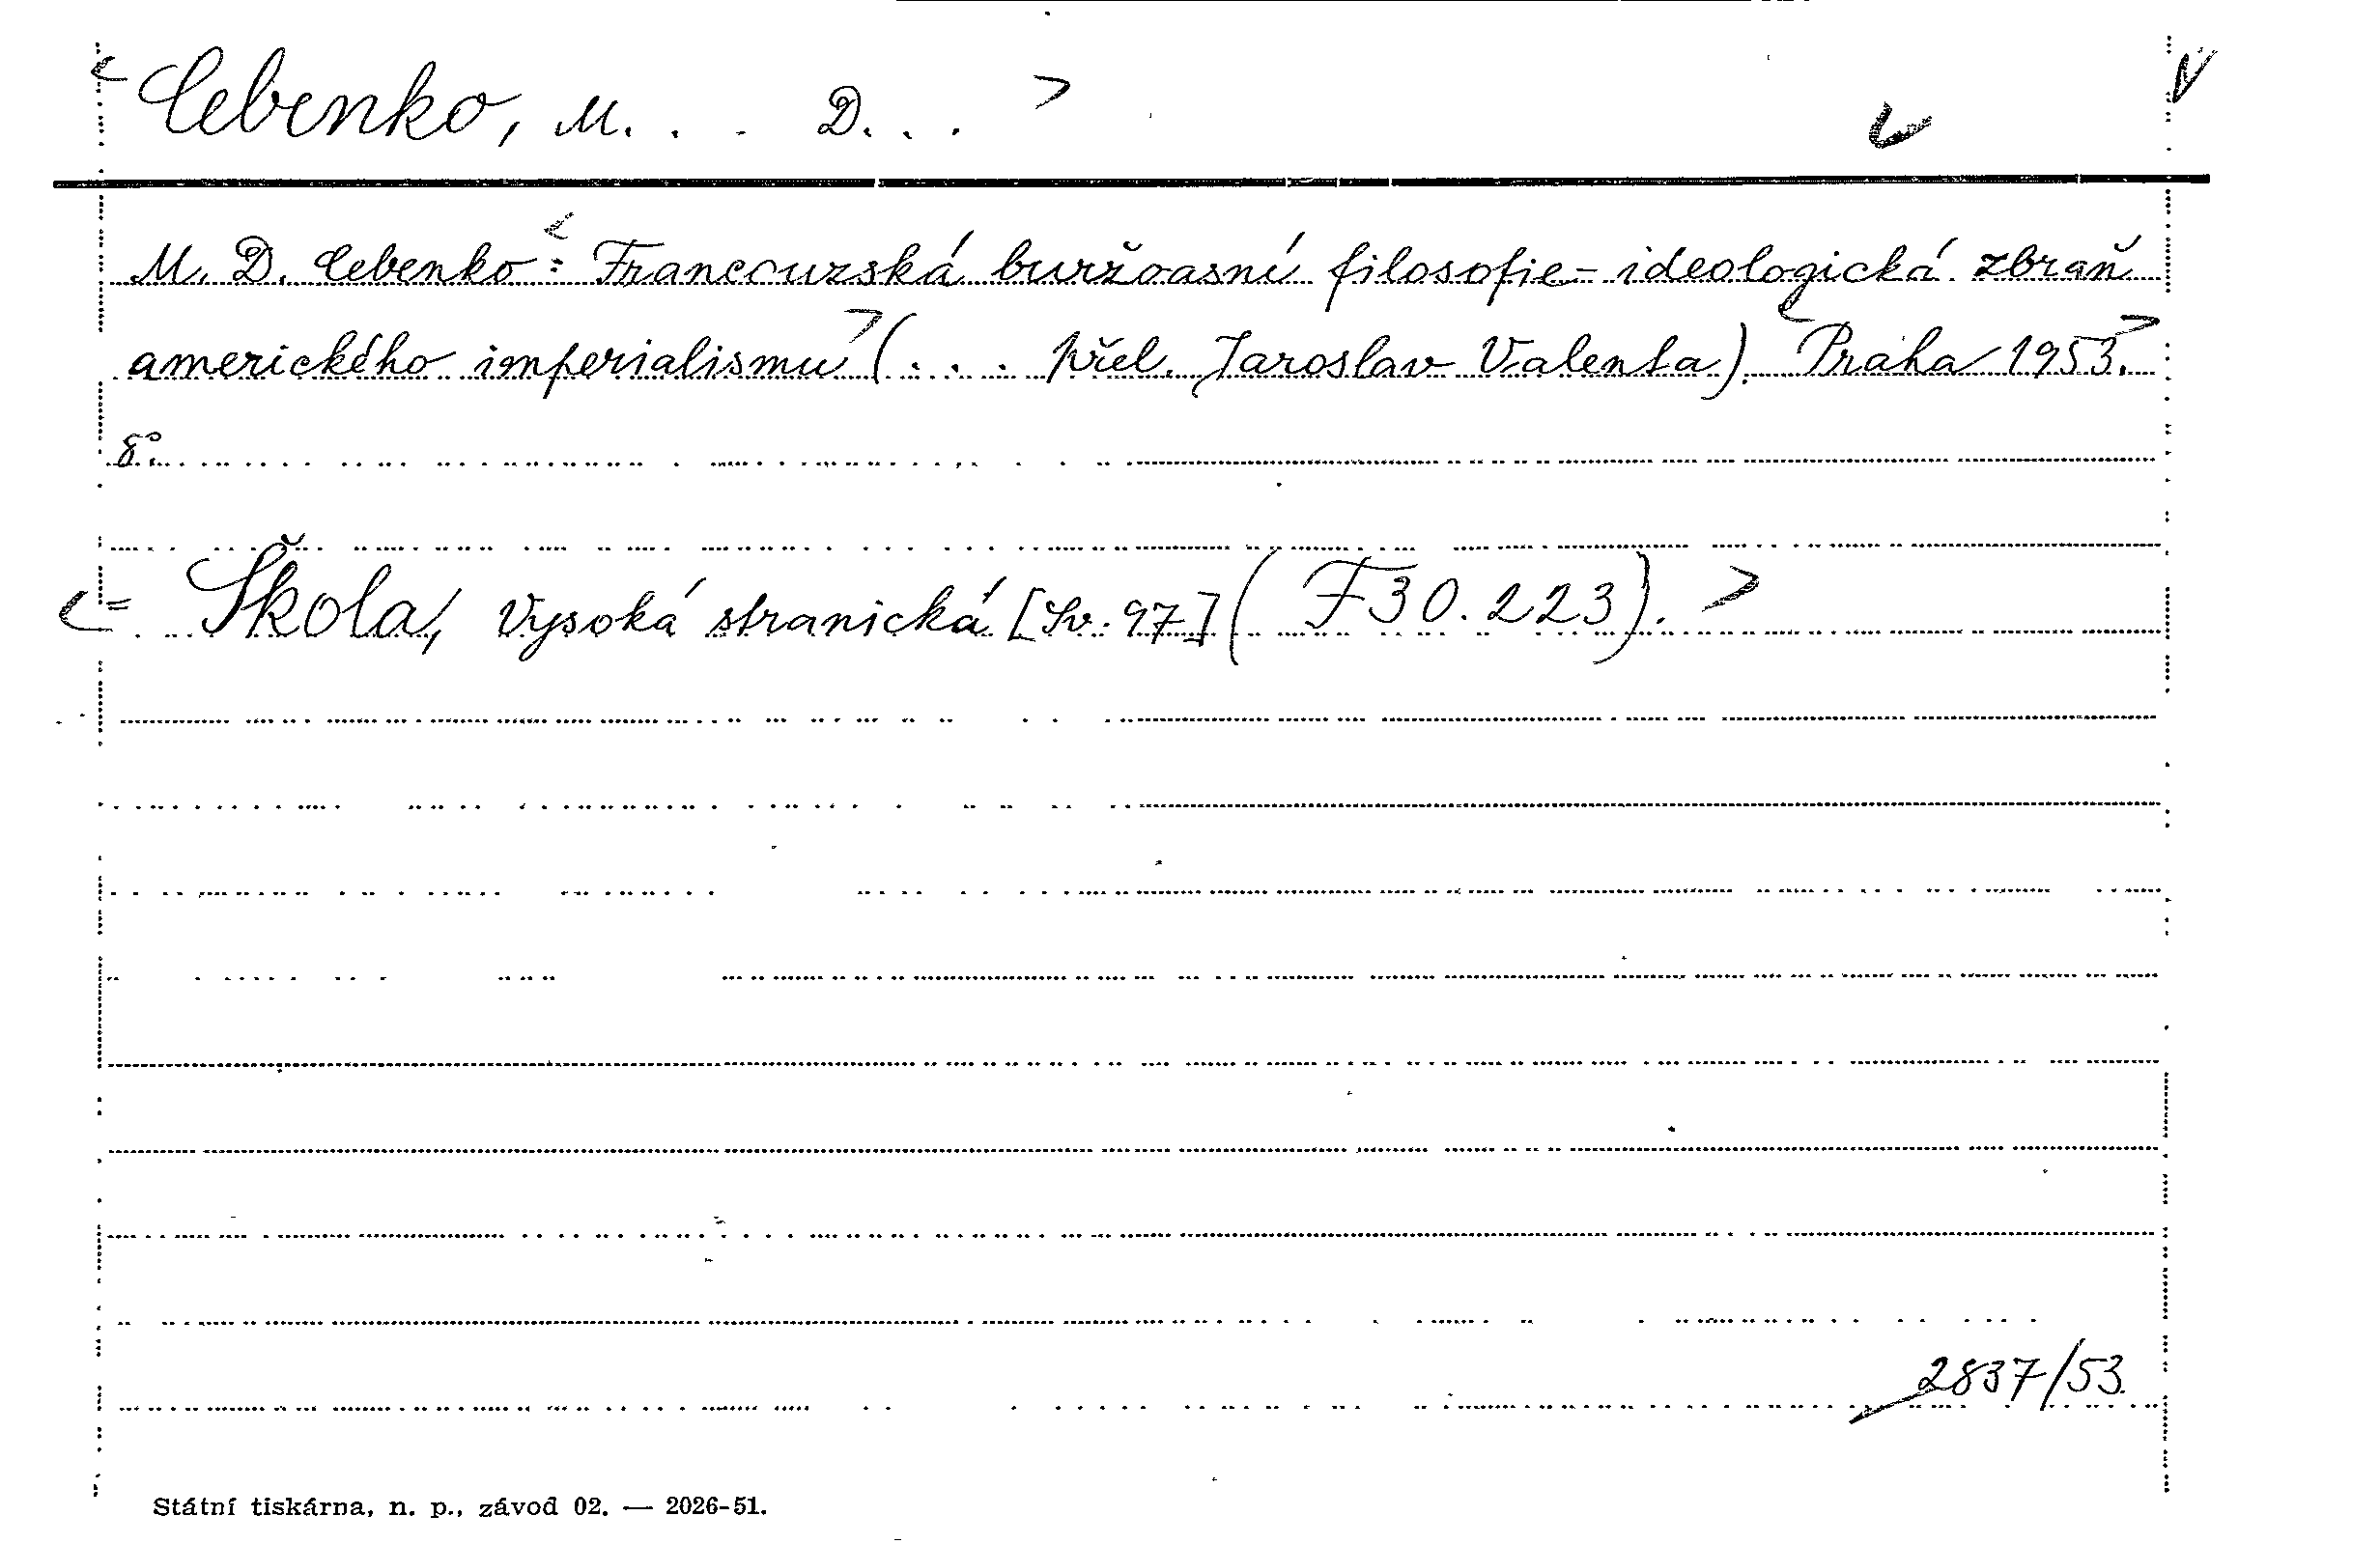 < Cebenko, M. . . D. . . >
M. D. Cebenko: < Francouzská buržoasní filosofie - ideologická zbraň
amerického imperialismu > (. . . přel. Jaroslav Valenta). < Praha 1953. >
8°.
< = Škola, Vysoká stranická [Sv. 97] ( F30.223). >
2837/53.
Státní tiskárna, n. p., závod 02. — 2026-51.